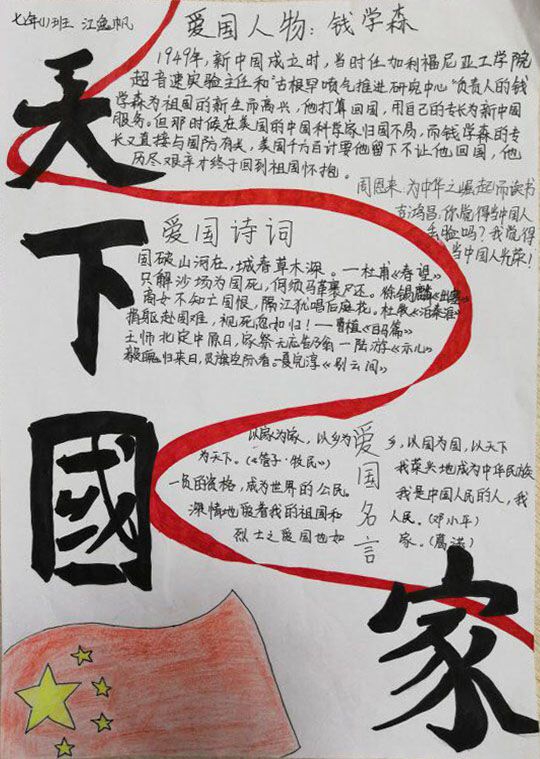 七年(1)班 江逸帆
爱国人物：钱学森
1949年，新中国成立之时，当时任加利福尼亚工学院
超音速实验主任和"古根罕喷气推进研究中心"负责人的钱
学森为祖国的新生而高兴，他打算回国，用自己的专长为新中国
服务。但那时候在美国的中国科学家归国不易，而钱学森的专
长又直接与国防有关，美国千方百计要他留下不让他回国，他
历尽艰辛才终于回到祖国怀抱。
周恩来：为中华之崛起而读书
吉鸿昌：你觉得当中国人
丢脸吗？我觉得
当中国人光荣！
爱国诗词
国破山河在，城春草木深。—杜甫《春望》
只解沙场为国死，何须马革裹尸还。徐锡麟《出塞》
商女不知亡国恨，隔江犹唱后庭花。杜牧《泊秦淮》
捐躯赴国难，视死忽如归！——曹植《白马篇》
王师北定中原日，家祭无忘告乃翁 —陆游《示儿》
毅魄归来日，灵旗空际看。夏完淳《别云间》
爱国名言
以家为家，以乡为乡，以国为国，以天下
为天下。(《管子·牧民》)
我荣兴地成为中华民族
一员的资格，成为世界的公民。
我是中国人民的人，我
深情地爱着我的祖国和人民。(邓小平)
烈士之爱国也如家。(葛洪)
天
下
國
家